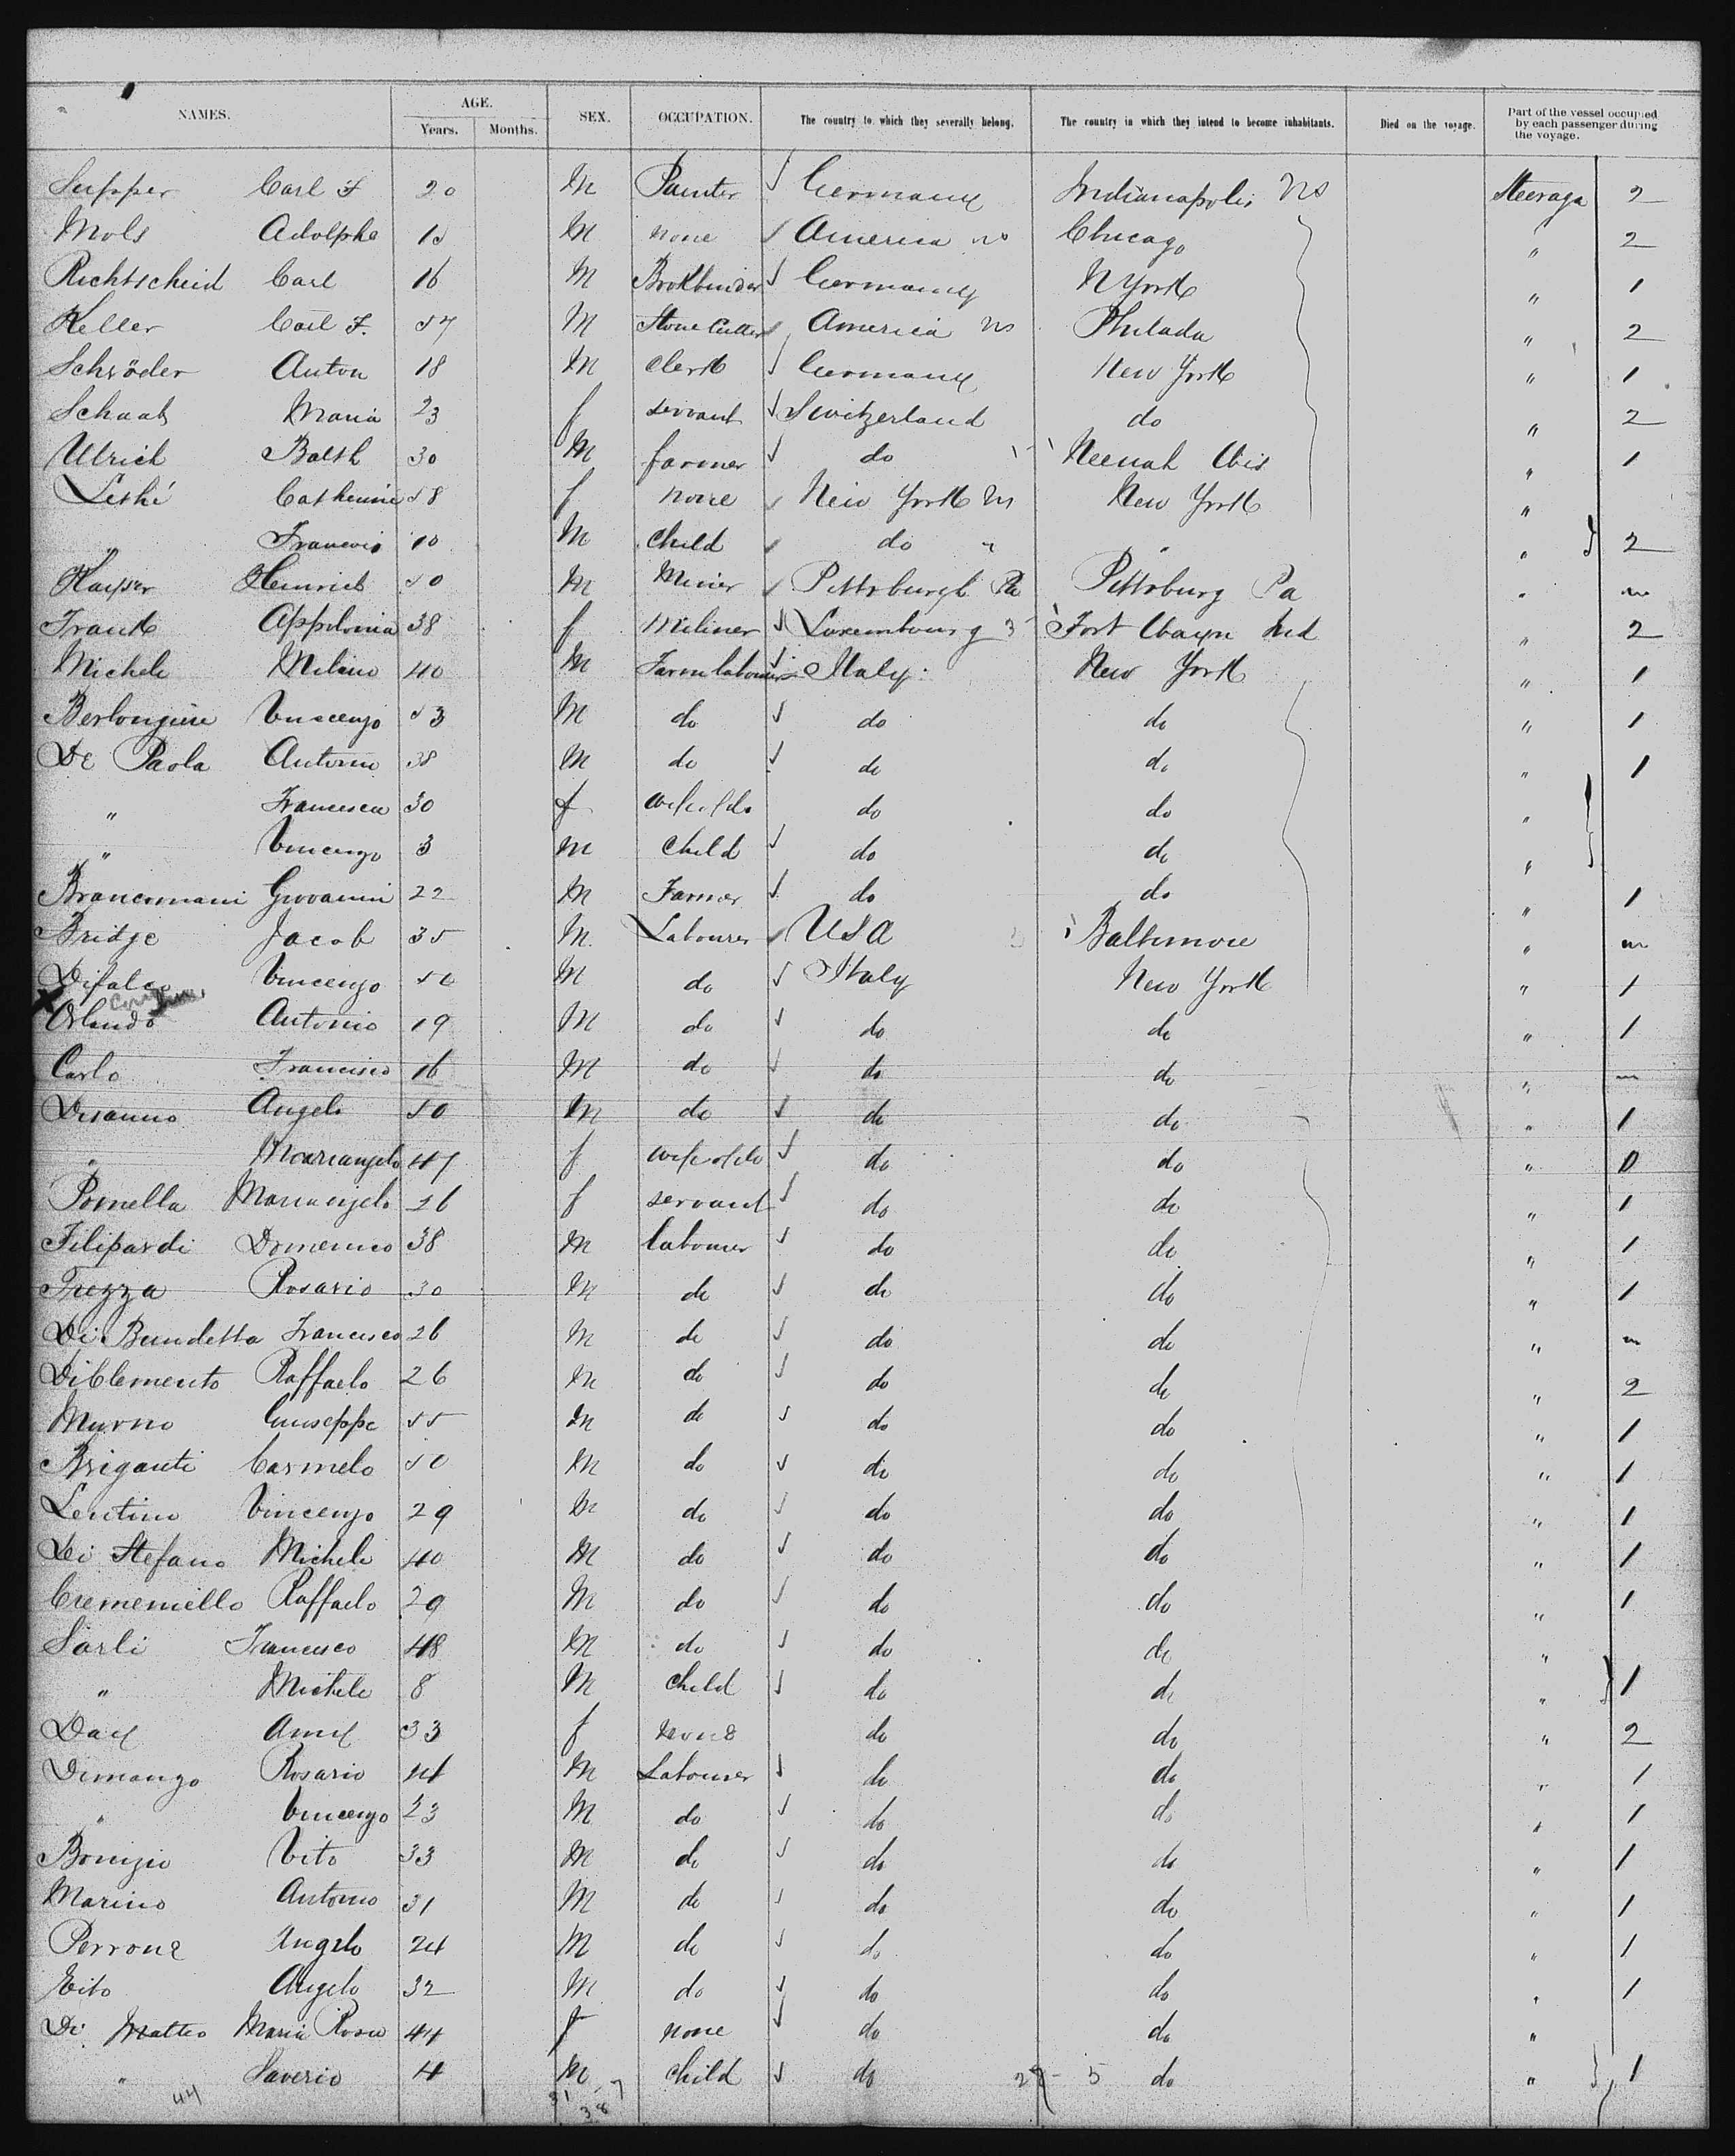 NAMES. AGE. SEX. OCCUPATION. The country to which they severally belong. The country in which they intend to become inhabitants. Died on the voyage. Part of the vessel occupied by each passenger during the voyage.
Years. Months.
Supper Carl F 20 M Painter √ Germany Indianapolis Steerage 2
Mols Adolphe M none √ America Chicago " 2
Richtscheid Carl 16 M Bookbinder √ Germany N York " 1
Keller Carl F. 57 M Stone Cutter √ America Philada " 2
Schröder Anton 18 M Clerk √ Germany New York " 1
Schaab Maria 23 f servant √ Switzerland do " 2
Ulrich Balth 30 M farmer √ do Neenah Wis " 1
Catherine 58 f none √ New York New York "
" Francois 10 M child √ do " " } 2
Heinrich 50 M Miner √ Pittsburgh Pa Pittsburg Pa "
Frank Appolonia 38 f Miliner √ Luxembourg Fort Wayn Ind " 2
Michele Milano 40 M Farm labourer √ Italy New York " 1
Vincenzo 53 M do √ do do " 1
De Paola Antonio 38 M do √ do do " 1
" Francesca 30 f wife of do do do "
" Vincenzo 3 M Child √ do do "
Giovanni 22 M Farmer √ do do " 1
Bridge Jacob 35 M. Labourer √ USA Baltimore "
Difalco Vincenzo 50 M do √ Italy New York " 1
X Orlando Antonio 19 M do √ do do " 1
Carlo Francisco 16 M do √ do do "
Desanno Angelo 50 M do √ do do " 1
" Mariangela 47 f wife of do √ do do " 0
Pomella Mariangela 26 f servant √ do do " 1
Filipardi Domenico 38 M labourer √ do do " 1
Trezza Rosario 30 M do √ do do " 1
Di Bundetta Francisco 26 M do √ do do "
DiClemento Raffaelo 26 M do √ do do " 2
Murno Giuseppe 55 M do √ do do " 1
Briganti Carmelo 50 M do √ do do " 1
Lentino Vincenzo 29 M do √ do do " 1
Di Stefano Michele 40 M do √ do do " 1
Cremeniello Raffaelo 29 M do √ do do " 1
Sarli Francesco 48 M do √ do do "
" Michele 8 M Child √ do do " } 1
Day Amy 33 f none do do " 2
Dimango Rosario 14 M Labourer √ do do " 1
" Vincenzo 23 M do √ do do " 1
Bonizio Vito 33 M do √ do do " 1
Marino Antonio 31 M do √ do do " 1
Perrone Angelo 24 M do √ do do " 1
Vito Angelo 32 M do √ do do " 1
Di Matteo Maria Rosa 44 f none √ do do "
" Saverio 4 M child √ do 5 do " } 1
44 31 - 7
38